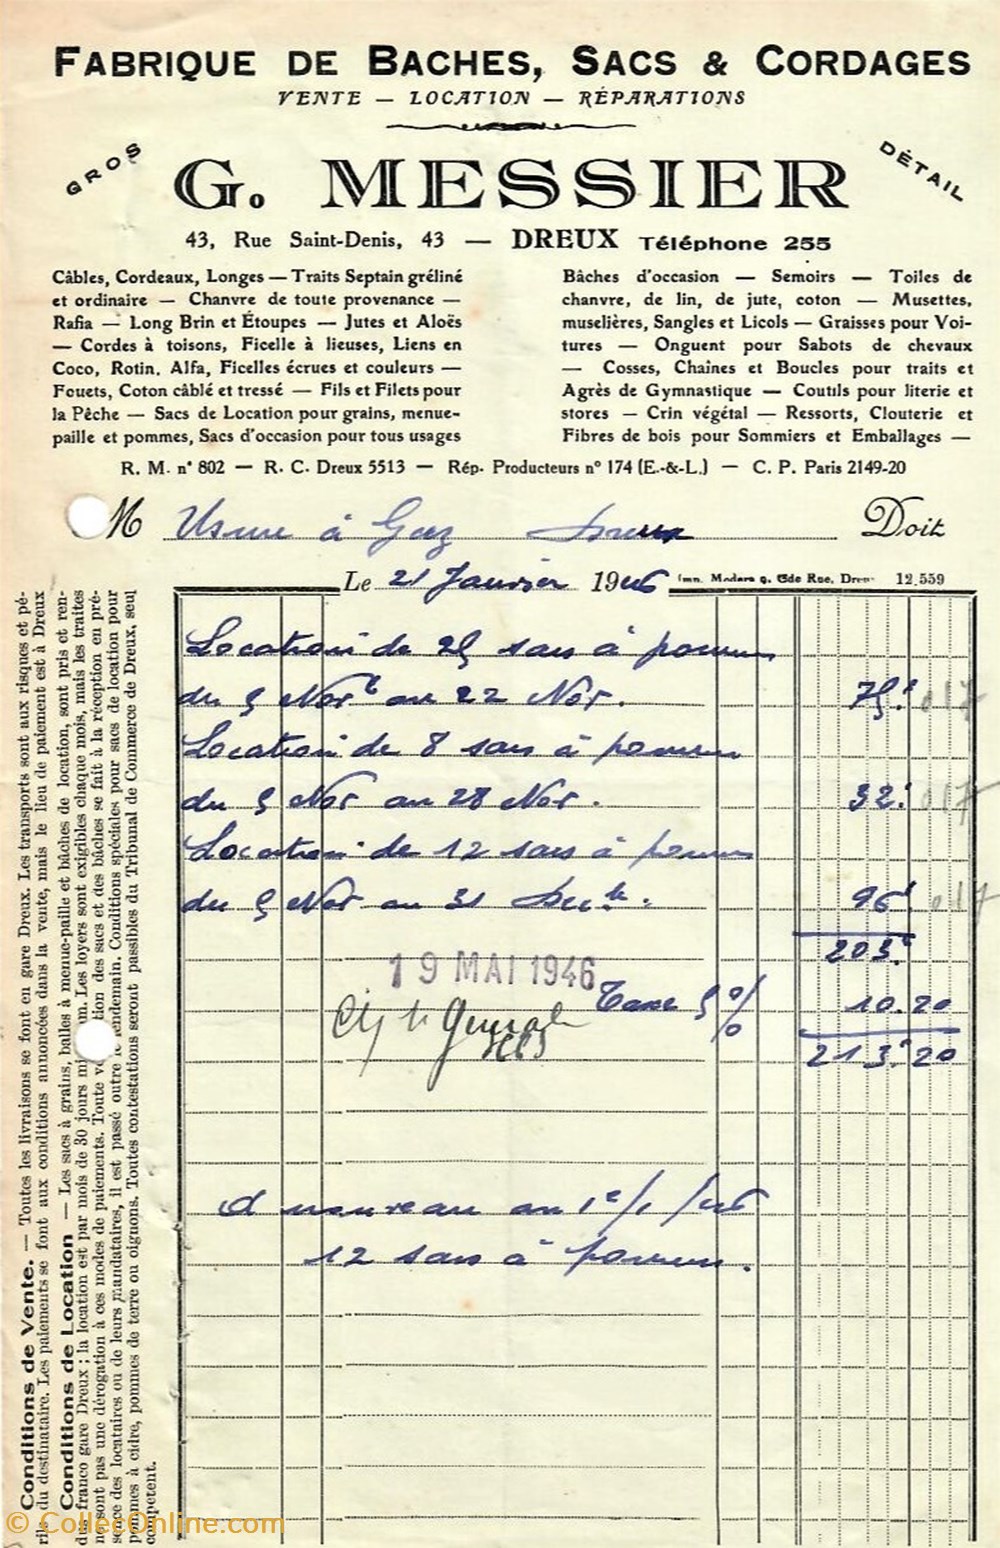 FABRIQUE DE BACHES, SACS & CORDAGES
VENTE — LOCATION — RÉPARATIONS
GROS
DÉTAIL
G. MESSIER
43, Rue Saint-Denis, 43 — DREUX Téléphone 255
Câbles, Cordeaux, Longes — Traits Septain gréliné
et ordinaire — Chanvre de toute provenance —
Rafia — Long Brin et Étoupes — Jutes et Aloës
— Cordes à toisons, Ficelle à lieuses, Liens en
Coco, Rotin, Alfa, Ficelles écrues et couleurs —
Fouets, Coton câblé et tressé — Fils et Filets pour
la Pêche — Sacs de Location pour grains, menue-
paille et pommes, Sacs d'occasion pour tous usages
Bâches d'occasion — Semoirs — Toiles de
chanvre, de lin, de jute, coton — Musettes,
muselières, Sangles et Licols — Graisses pour Voi-
tures — Onguent pour Sabots de chevaux
— Cosses, Chaînes et Boucles pour traits et
Agrès de Gymnastique — Coutils pour literie et
stores — Crin végétal — Ressorts, Clouterie et
Fibres de bois pour Sommiers et Emballages —
R. M. n° 802 — R. C. Dreux 5513 — Rép. Producteurs n° 174 (E.-&-L.) — C. P. Paris 2149-20
M Usine à Gaz Dreux Doit
Le 21 Janvier 1946 Imp. Moderne, Gde Rue, Dreux 12.559
Location de 25 sacs à pommes
du 5 Nov au 22 Nov. 75f 017
Location de 8 sacs à pommes
du 5 Nov au 28 Nov. 32f 017
Location de 12 sacs à pommes
du 5 Nov au 31 Dec. 96f 017
203f
19 MAI 1946
Taxe 5 % 10.20
213f20
A nouveau au 1e/1/46
12 sacs à pommes.
Conditions de Vente. — Toutes les livraisons se font en gare Dreux. Les transports sont aux risques et pé-
rils du destinataire. Les paiements se font aux conditions annoncées dans la vente, mais le lieu de paiement est à Dreux
Conditions de Location — Les sacs à grains, balles à menue-paille et bâches de location, sont pris et ren-
dus franco gare Dreux ; la location est par mois de 30 jours Les loyers sont exigibles chaque mois, mais les traites
ne sont pas une dérogation à ces modes de paiements. Toute des sacs et des bâches se fait à la réception en pré-
sence des locataires ou de leurs mandataires, il est passé outre le lendemain. Conditions spéciales pour sacs de location pour
pommes à cidre, pommes de terre ou oignons. Toutes contestations seront passibles du Tribunal de Commerce de Dreux, seul
compétent.
© CollecOnline.com